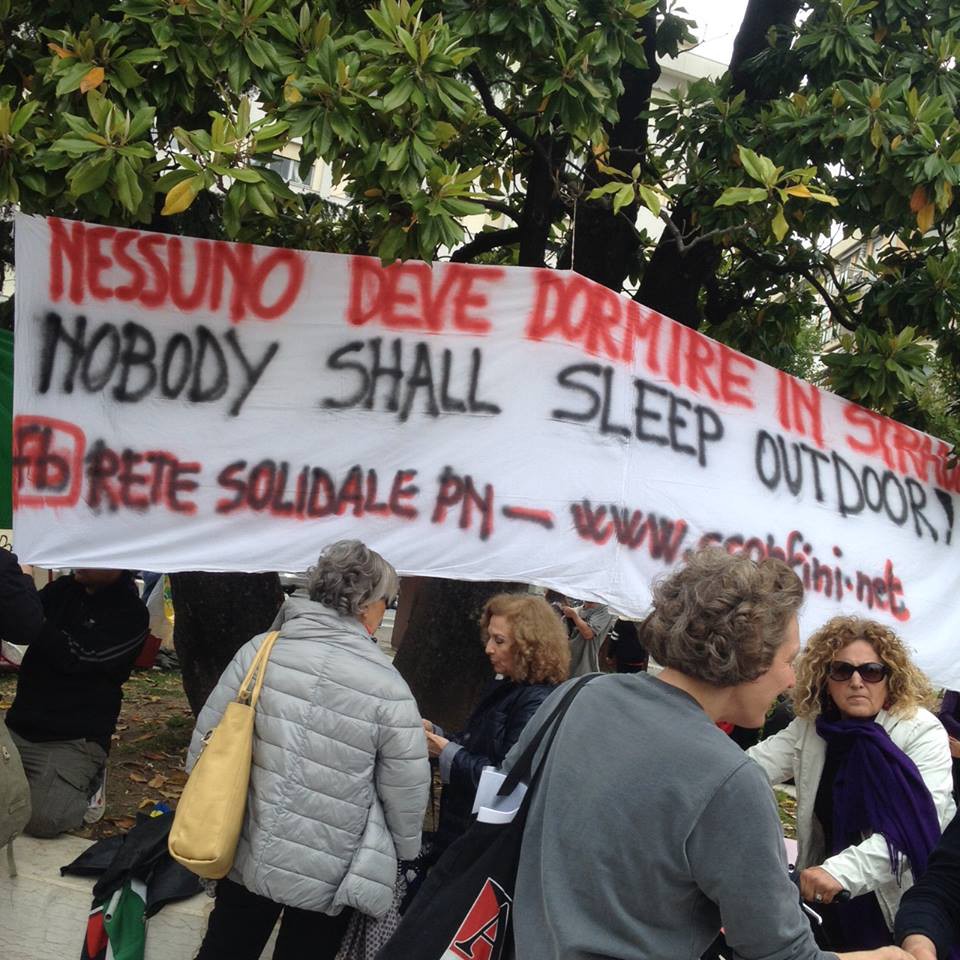 NESSUNO DEVE DORMIRE IN STRADA
NOBODY SHALL SLEEP OUTDOOR!
fb RETE SOLIDALE PN — www.scobfini.net
A